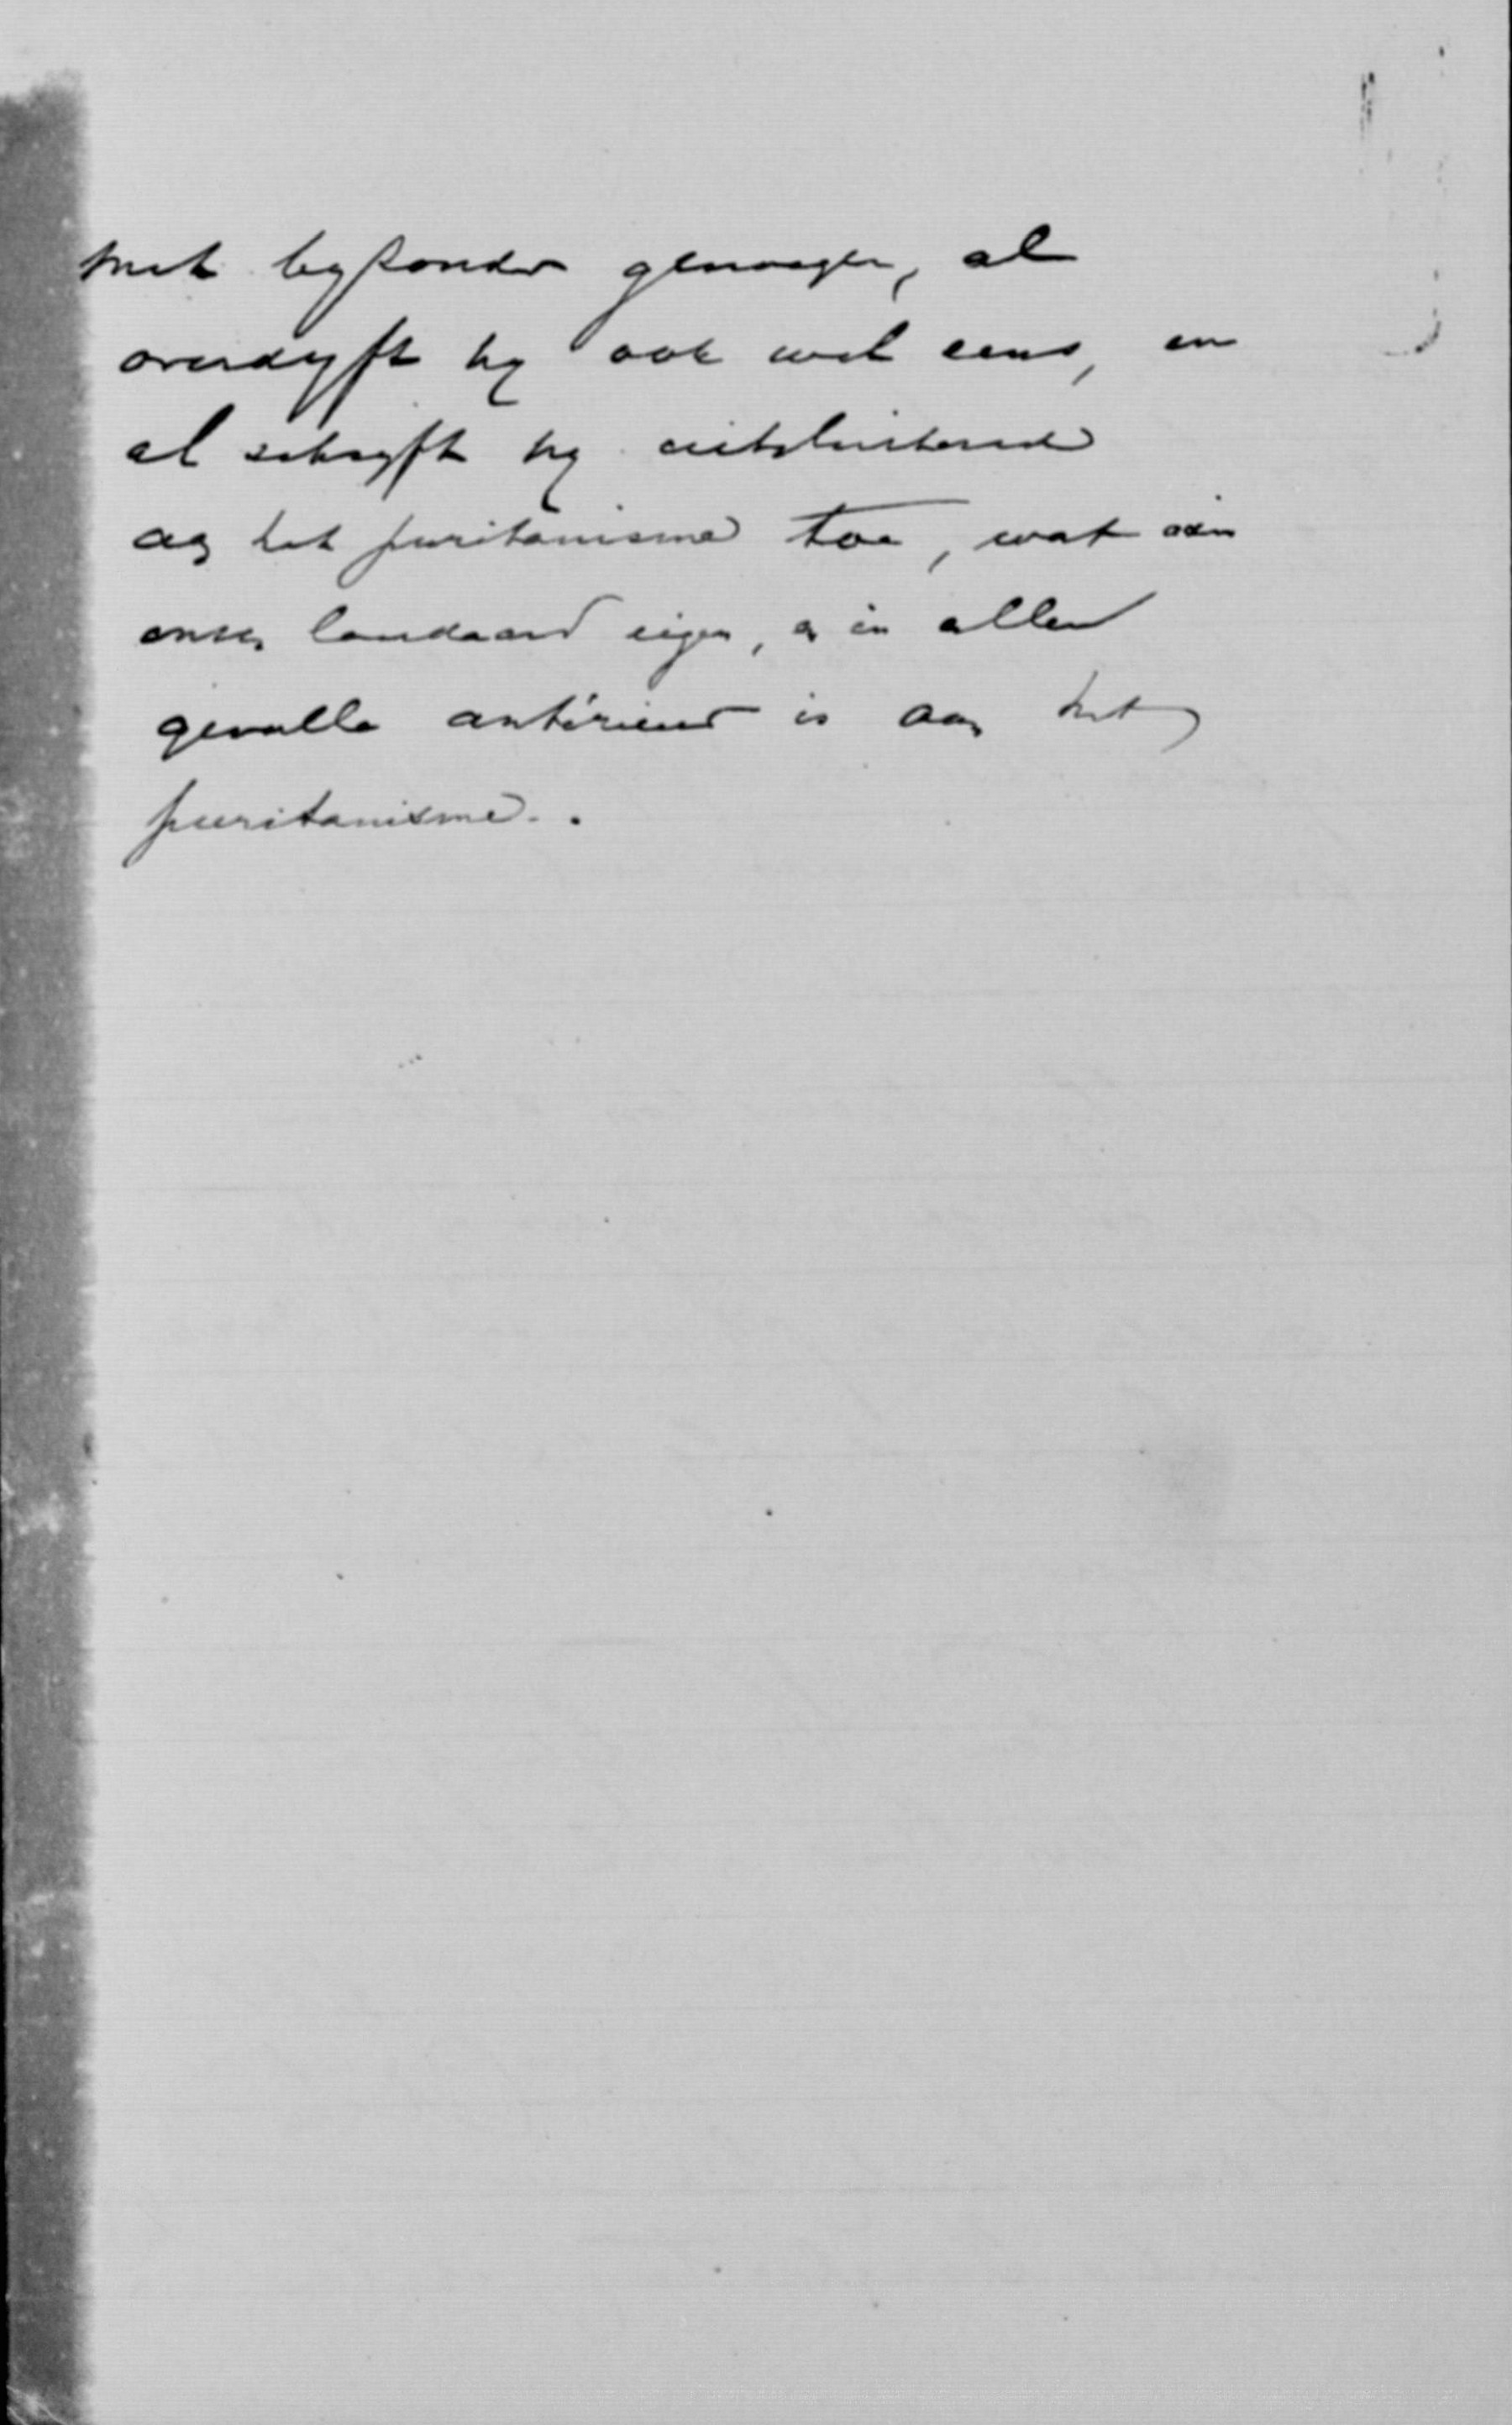 met byzonder genoegen, al
overdryft hy ook wel eens, en
al schryft hy uitsluitend
aan het puritanisme toe, wat aan
onzen landaard eigen, en in allen
gevalle antérieur is aan het
puritanisme.